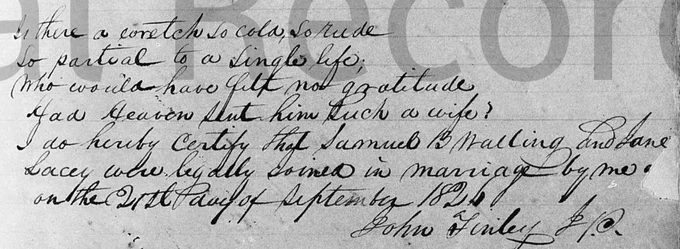 Is there a wretch so cold, so rude
So partial to a single life;
Who would have felt no gratitude
Had Heaven sent him such a wife?
I do hereby Certify that Samuel B Walling and Jane
Lacey were legally joined in marriage by me
on the 21st day of September 182
John Finley J.P.